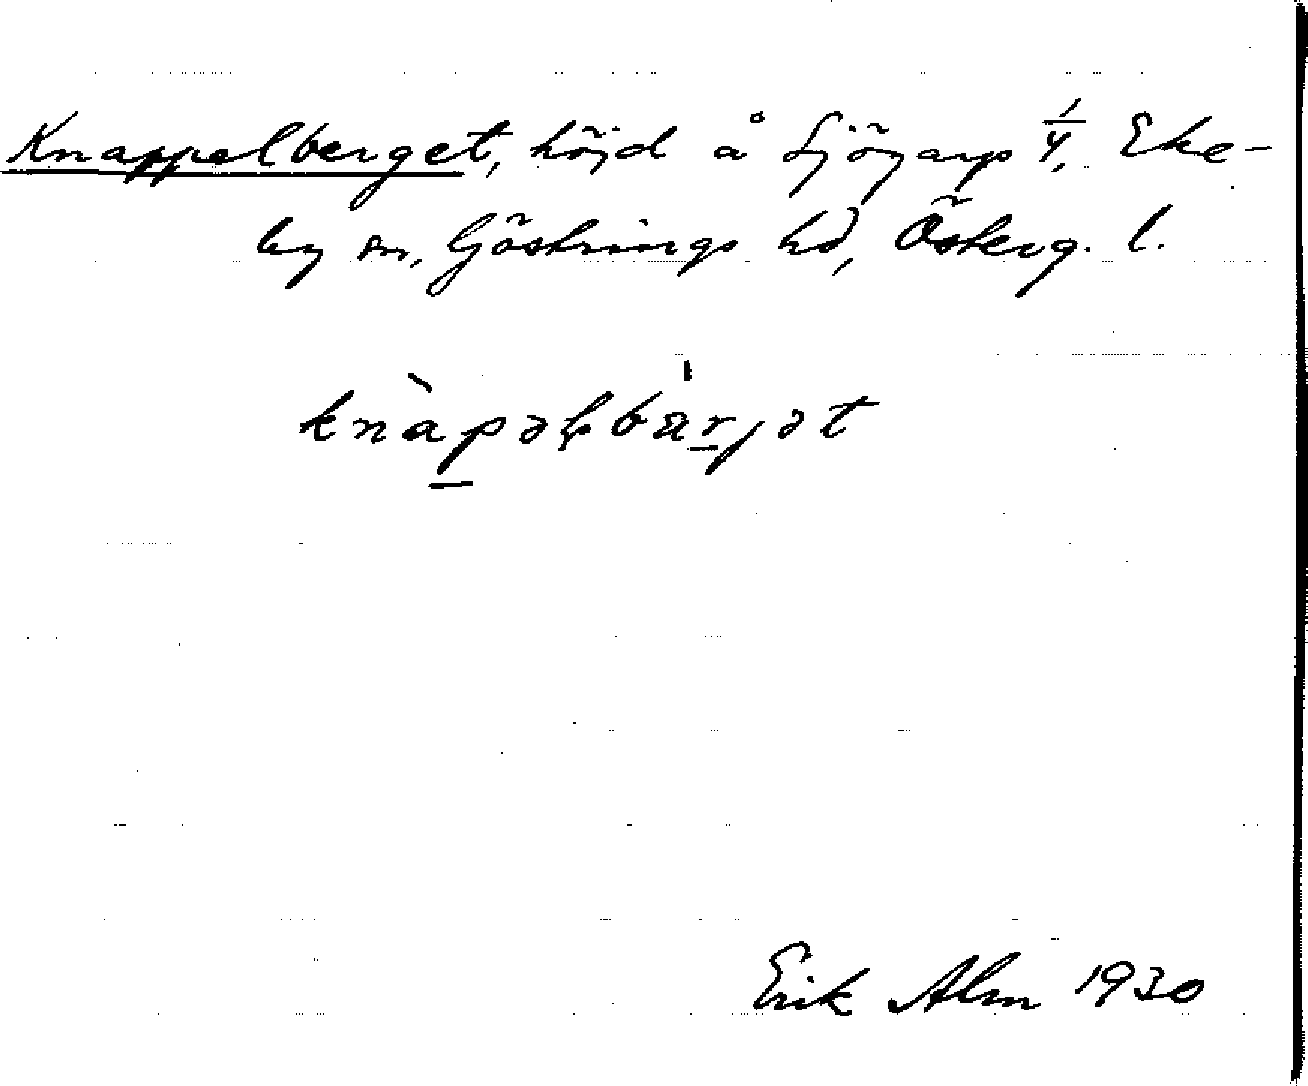 Knappelberget, höjd å Sjögarp 1/4, Eke-
by sn, Göstrings hd, Österg. l.
knàpəḷbärjət
Erik Alm 1930